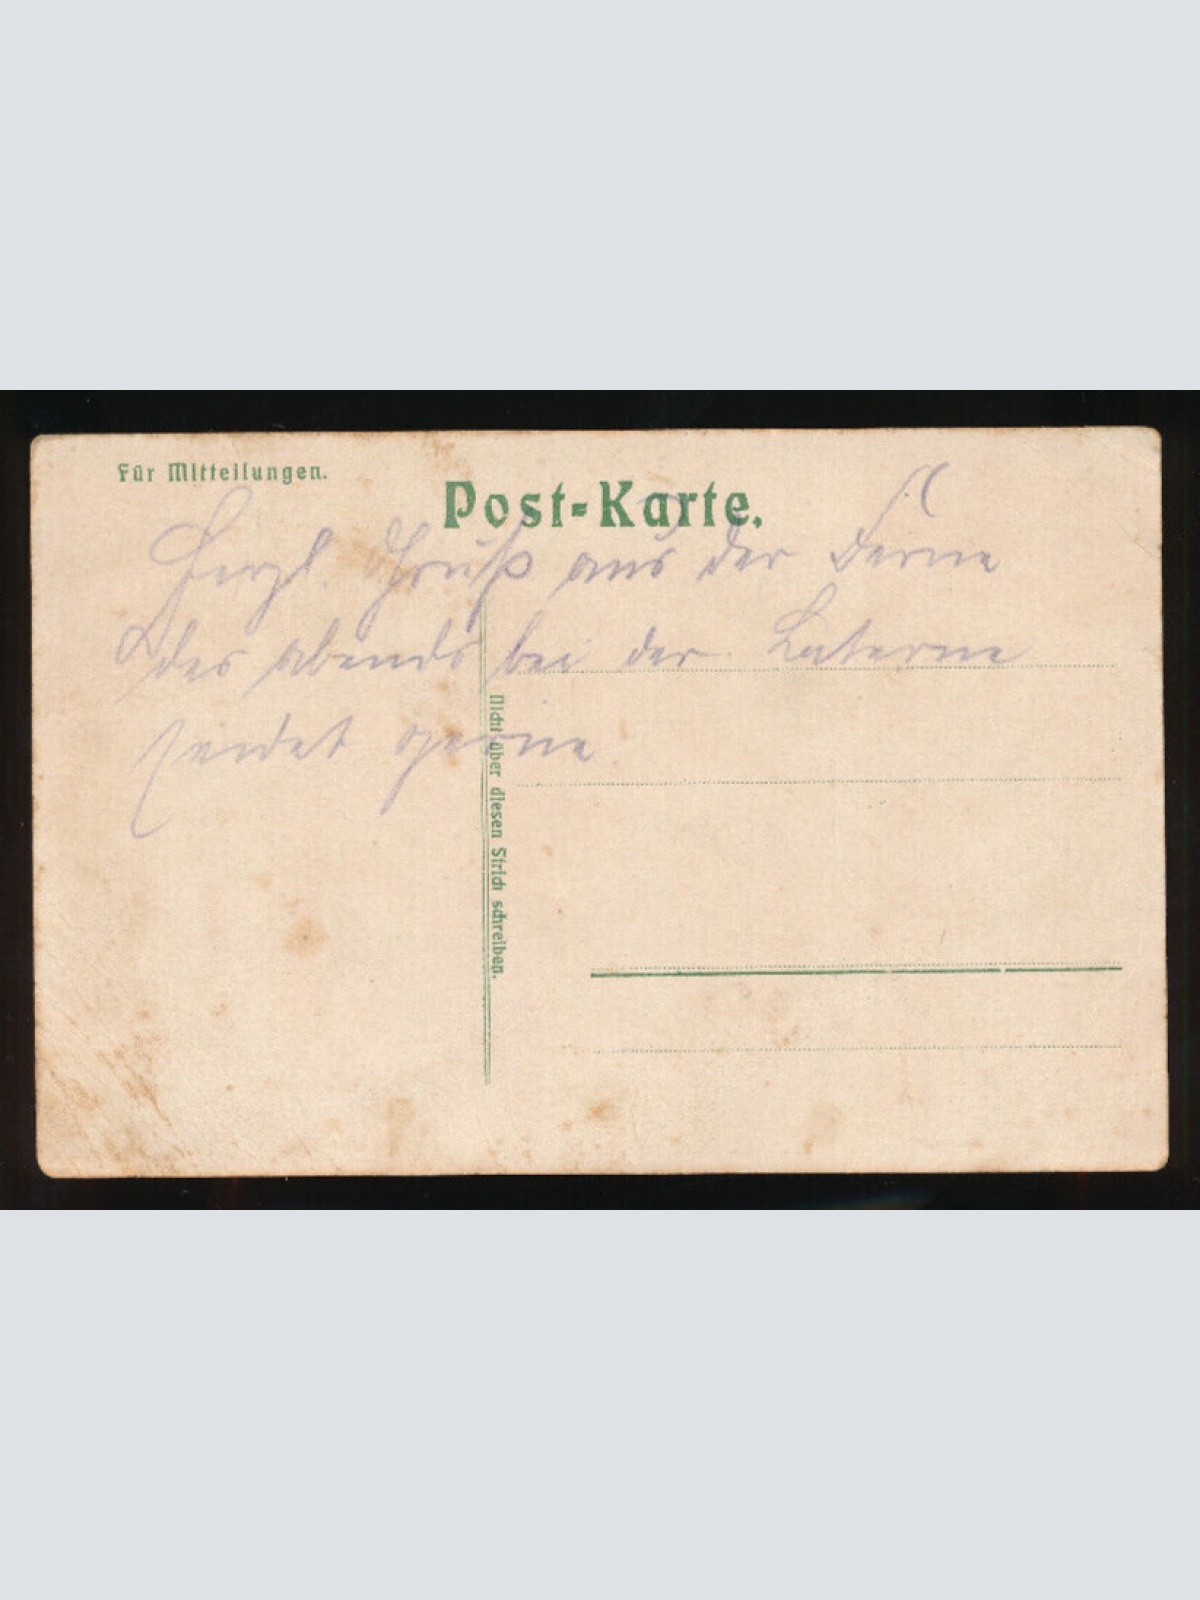 Für Mitteilungen.
Post-Karte.
Herzl. Gruß aus der Ferne
des abends bei der Laterne
sendet gerne
Nicht über diesen Strich schreiben.